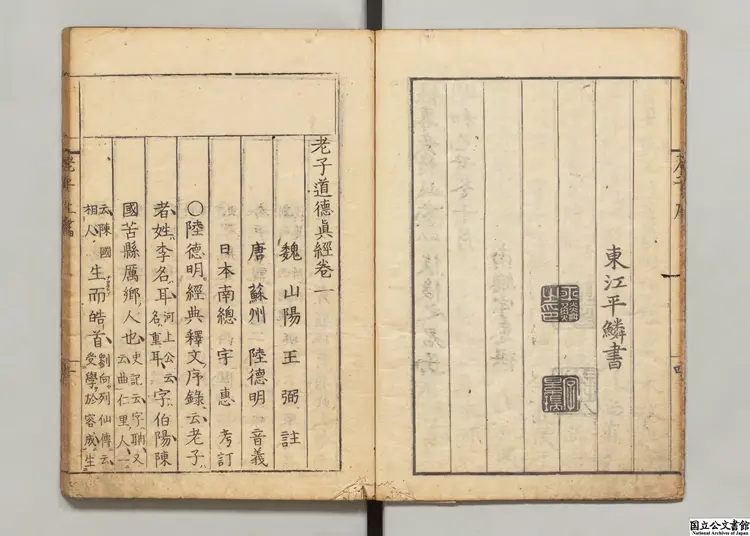 東江平鱗書
老子道德眞經卷一
魏山陽王弼註
唐蘇州陸德明音義
日本南總宇惠考訂
〇陸德明經典釋文序錄云老子
者姓李名耳河上公云名重耳字伯陽陳
國苦縣厲鄉人也史記云字聃又云曲仁里人一
云陳國相人生而皓首劉向列仙傳云受學於容成生
国立公文書館
National Archives of Japan